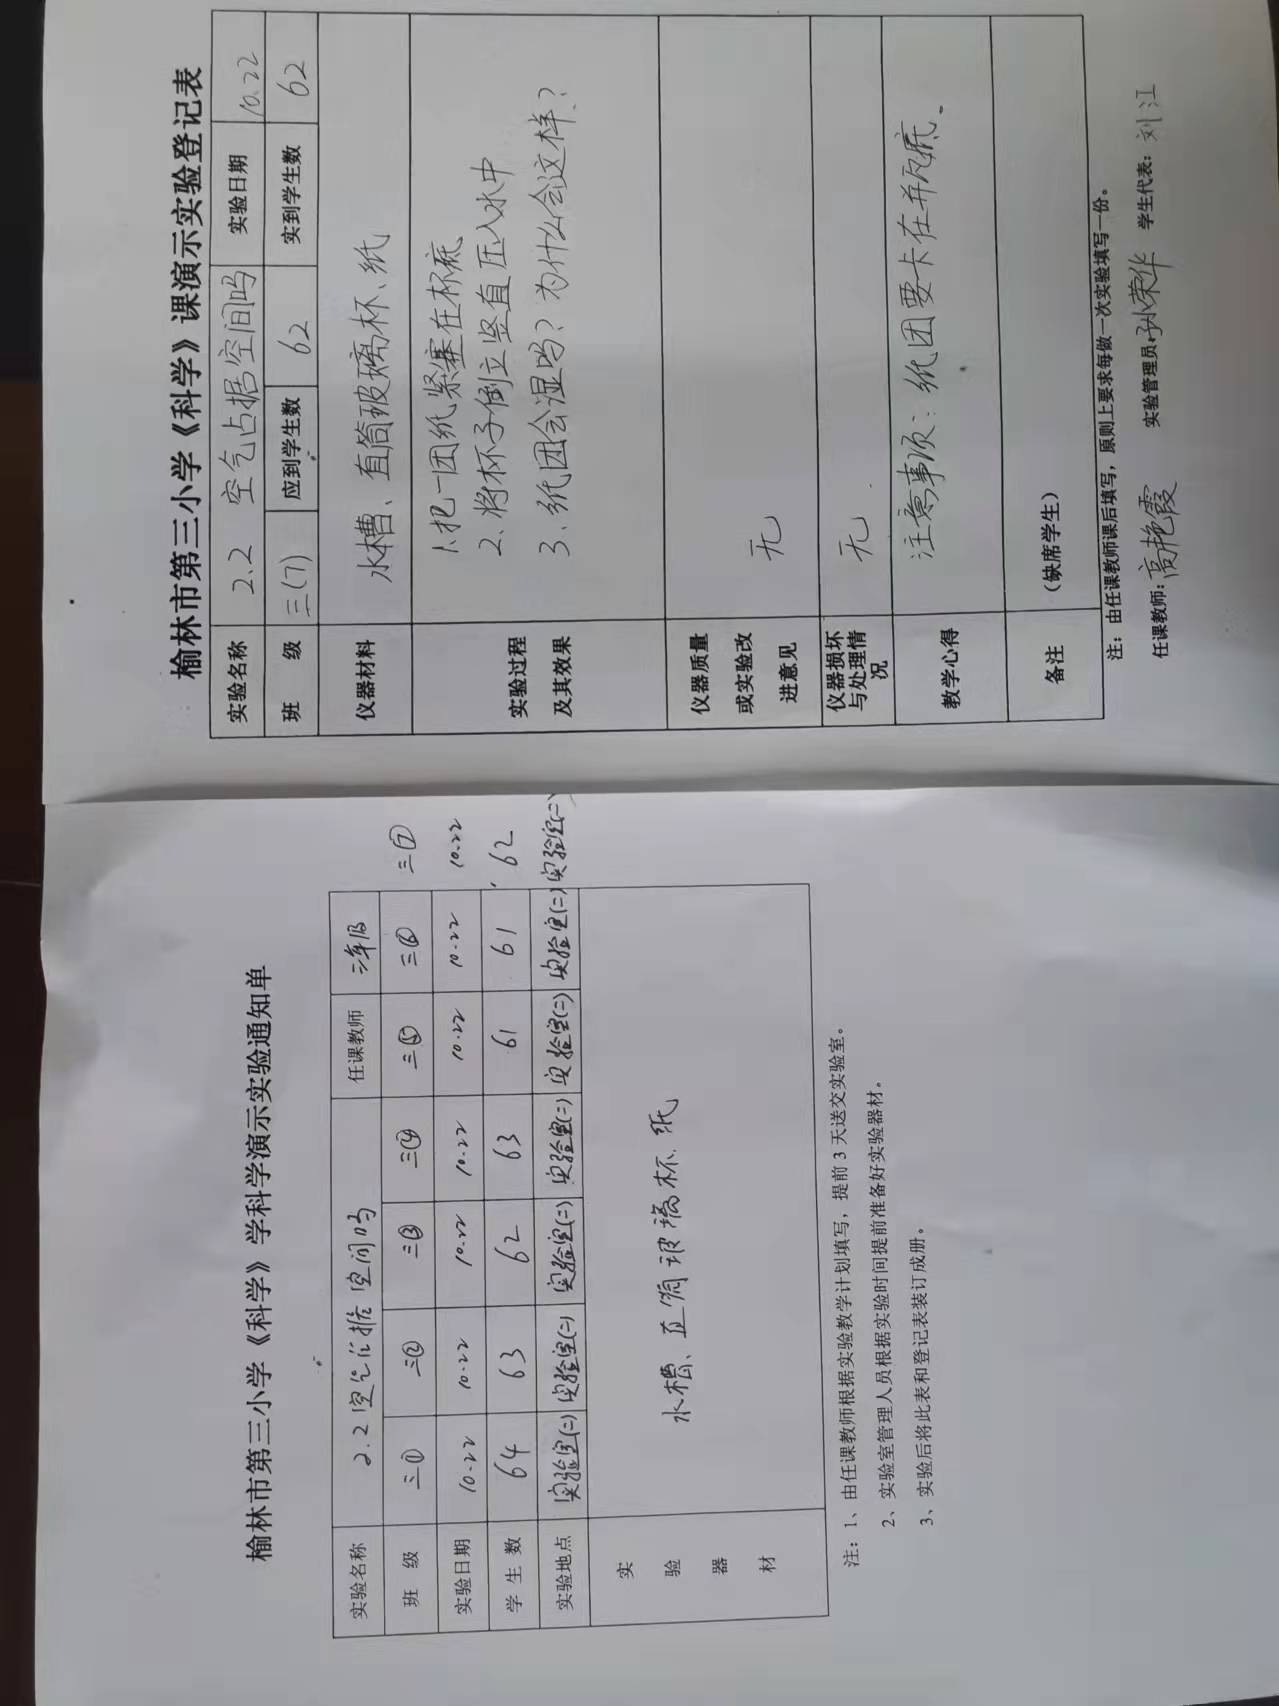 榆林市第三小学《科学》学科学演示实验通知单
实验名称 2.2空气占据空间吗 任课教师 三年级
班 级 三① 三② 三③ 三④ 三⑤ 三⑥ 三⑦
实验日期 10.22 10.22 10.22 10.22 10.22 10.22 10.22
学 生 数 64 63 62 63 61 61 62
实验地点 实验室(二) 实验室(二) 实验室(二) 实验室(二) 实验室(二) 实验室(二) 实验室(二)
实验器材 水槽、直筒玻璃杯、纸
注：1、由任课教师根据实验教学计划填写，提前 3 天送交实验室。
2、实验室管理人员根据实验时间提前准备好实验器材。
3、实验后将此表和登记表装订成册。
榆林市第三小学《科学》课演示实验登记表
实验名称 2.2 空气占据空间吗 实验日期 10.22
班 级 三(7) 应到学生数 62 实到学生数 62
仪器材料 水槽、直筒玻璃杯、纸
实验过程
及其效果
1.把一团纸紧塞在杯底
2、将杯子倒立竖直压入水中
3、纸团会湿吗?为什么会这样?
仪器质量
或实验改
进意见
无
仪器损坏
与处理情
况
无
教学心得 注意事项：纸团要卡在并底.
备注 （缺席学生）
注：由任课教师课后填写，原则上要求每做一次实验填写一份。
任课教师:高艳霞 实验管理员:孙荣华 学生代表: 刘江